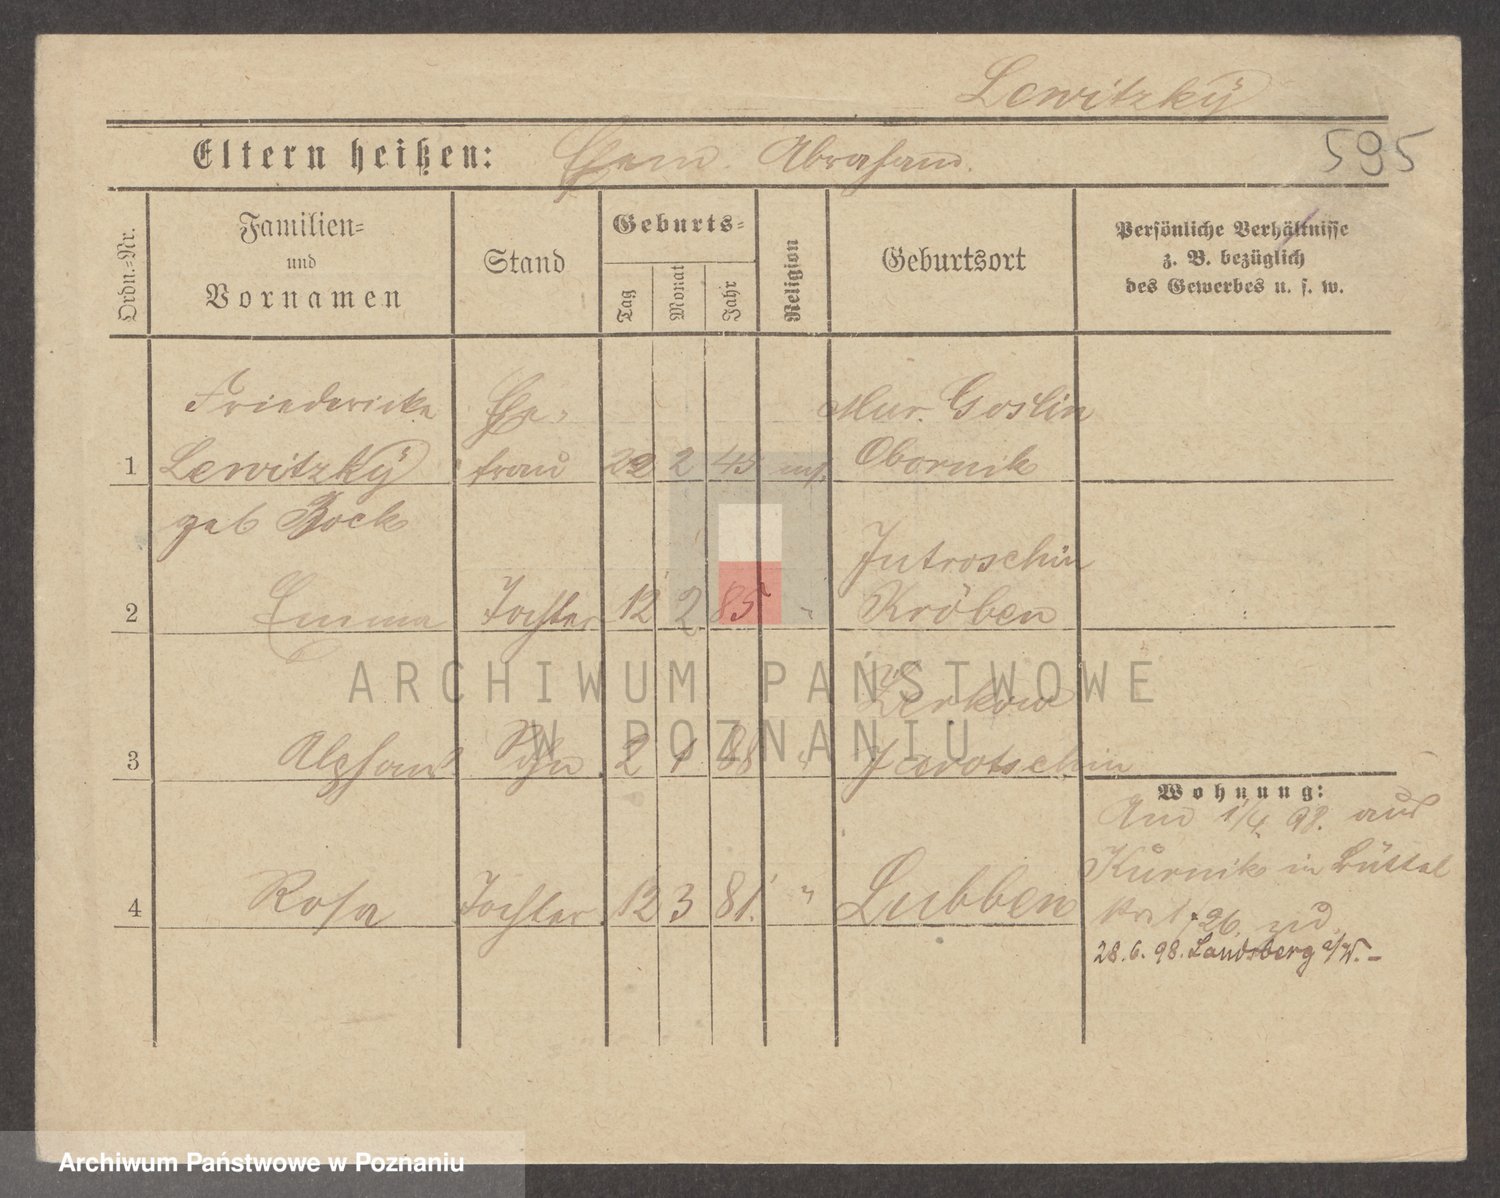 Lewitzky
595
Eltern heißen: Ehem. Abraham.
Ordn.-Nr.
Familien-
und
Vornamen
Stand
Geburts-
Tag
Monat
Jahr
Religion
Geburtsort
Persönliche Verhältnisse
z. B. bezüglich
des Gewerbes u. s. w.
Friedericke Ehe- Mur. Goslin
1 Lewitzky frau 22 2 45 mos. Obornik
geb Bock
Jutroschin
2 Emma Tochter 12 2 85 " Kröben
Zerkow
3 Alphons Sohn 2 1 88 " Jarotschin
Wohnung:
Am 1/4 98. aus
Kurnik in
4 Rosa Tochter 12 3 81. " Lubben
26.
28.6.98. Landsberg a/W.-
ARCHIWUM PAŃSTWOWE
W POZNANIU
Archiwum Państwowe w Poznaniu